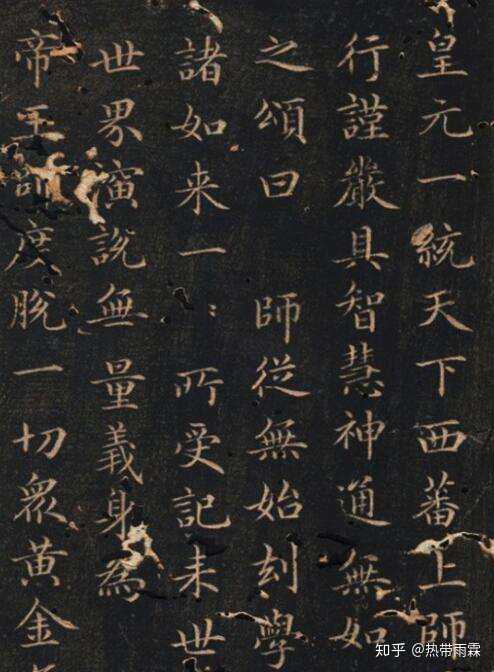 皇元一統天下西蕃上師
行謹嚴具智慧神通無如
之頌曰 師從無始刻學
諸如来一:所受記来世
世界演説無量義身為
帝王師度脫一切衆黄金
知乎 @热带雨霖